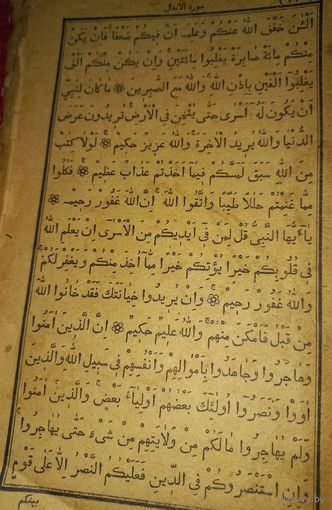 سورة الانفال
اَلْـٰٔنَ خَفَّفَ اللّٰهُ عَنْكُمْ وَعَلِمَ اَنَّ فِيكُمْ ضَعْفًا فَاِنْ يَكُنْ
مِنْكُمْ مِائَةٌ صَابِرَةٌ يَغْلِبُوا مِائَتَيْنِ وَاِنْ يَكُنْ مِنْكُمْ اَلْفٌ
يَغْلِبُوا اَلْفَيْنِ بِاِذْنِ اللّٰهِ وَاللّٰهُ مَعَ الصَّابِرِينَ ۞ مَا كَانَ لِنَبِيٍّ
اَنْ يَكُونَ لَهُ اَسْرٰى حَتّٰى يُثْخِنَ فِى الْاَرْضِ تُرِيدُونَ عَرَضَ
الدُّنْيَا وَاللّٰهُ يُرِيدُ الْاٰخِرَةَ وَاللّٰهُ عَزِيزٌ حَكِيمٌ ۞ لَوْلَا كِتَابٌ
مِنَ اللّٰهِ سَبَقَ لَمَسَّكُمْ فِيمَا اَخَذْتُمْ عَذَابٌ عَظِيمٌ ۞ فَكُلُوا
مِمَّا غَنِمْتُمْ حَلَالًا طَيِّبًا وَاتَّقُوا اللّٰهَ اِنَّ اللّٰهَ غَفُورٌ رَحِيمٌ ۞
يَا اَيُّهَا النَّبِىُّ قُلْ لِمَنْ فِى اَيْدِيكُمْ مِنَ الْاَسْرٰى اِنْ يَعْلَمِ اللّٰهُ
فِى قُلُوبِكُمْ خَيْرًا يُؤْتِكُمْ خَيْرًا مِمَّا اُخِذَ مِنْكُمْ وَيَغْفِرْ لَكُمْ
وَاللّٰهُ غَفُورٌ رَحِيمٌ ۞ وَاِنْ يُرِيدُوا خِيَانَتَكَ فَقَدْ خَانُوا اللّٰهَ
مِنْ قَبْلُ فَاَمْكَنَ مِنْهُمْ وَاللّٰهُ عَلِيمٌ حَكِيمٌ ۞ اِنَّ الَّذِينَ اٰمَنُوا
وَهَاجَرُوا وَجَاهَدُوا بِاَمْوَالِهِمْ وَاَنْفُسِهِمْ فِى سَبِيلِ اللّٰهِ وَالَّذِينَ
اٰوَوْا وَنَصَرُوا اُولٰئِكَ بَعْضُهُمْ اَوْلِيَاءُ بَعْضٍ وَالَّذِينَ اٰمَنُوا
وَلَمْ يُهَاجِرُوا مَا لَكُمْ مِنْ وَلَايَتِهِمْ مِنْ شَىْءٍ حَتّٰى يُهَاجِرُوا
وَاِنِ اسْتَنْصَرُوكُمْ فِى الدِّينِ فَعَلَيْكُمُ النَّصْرُ اِلَّا عَلٰى قَوْمٍ
بينكم